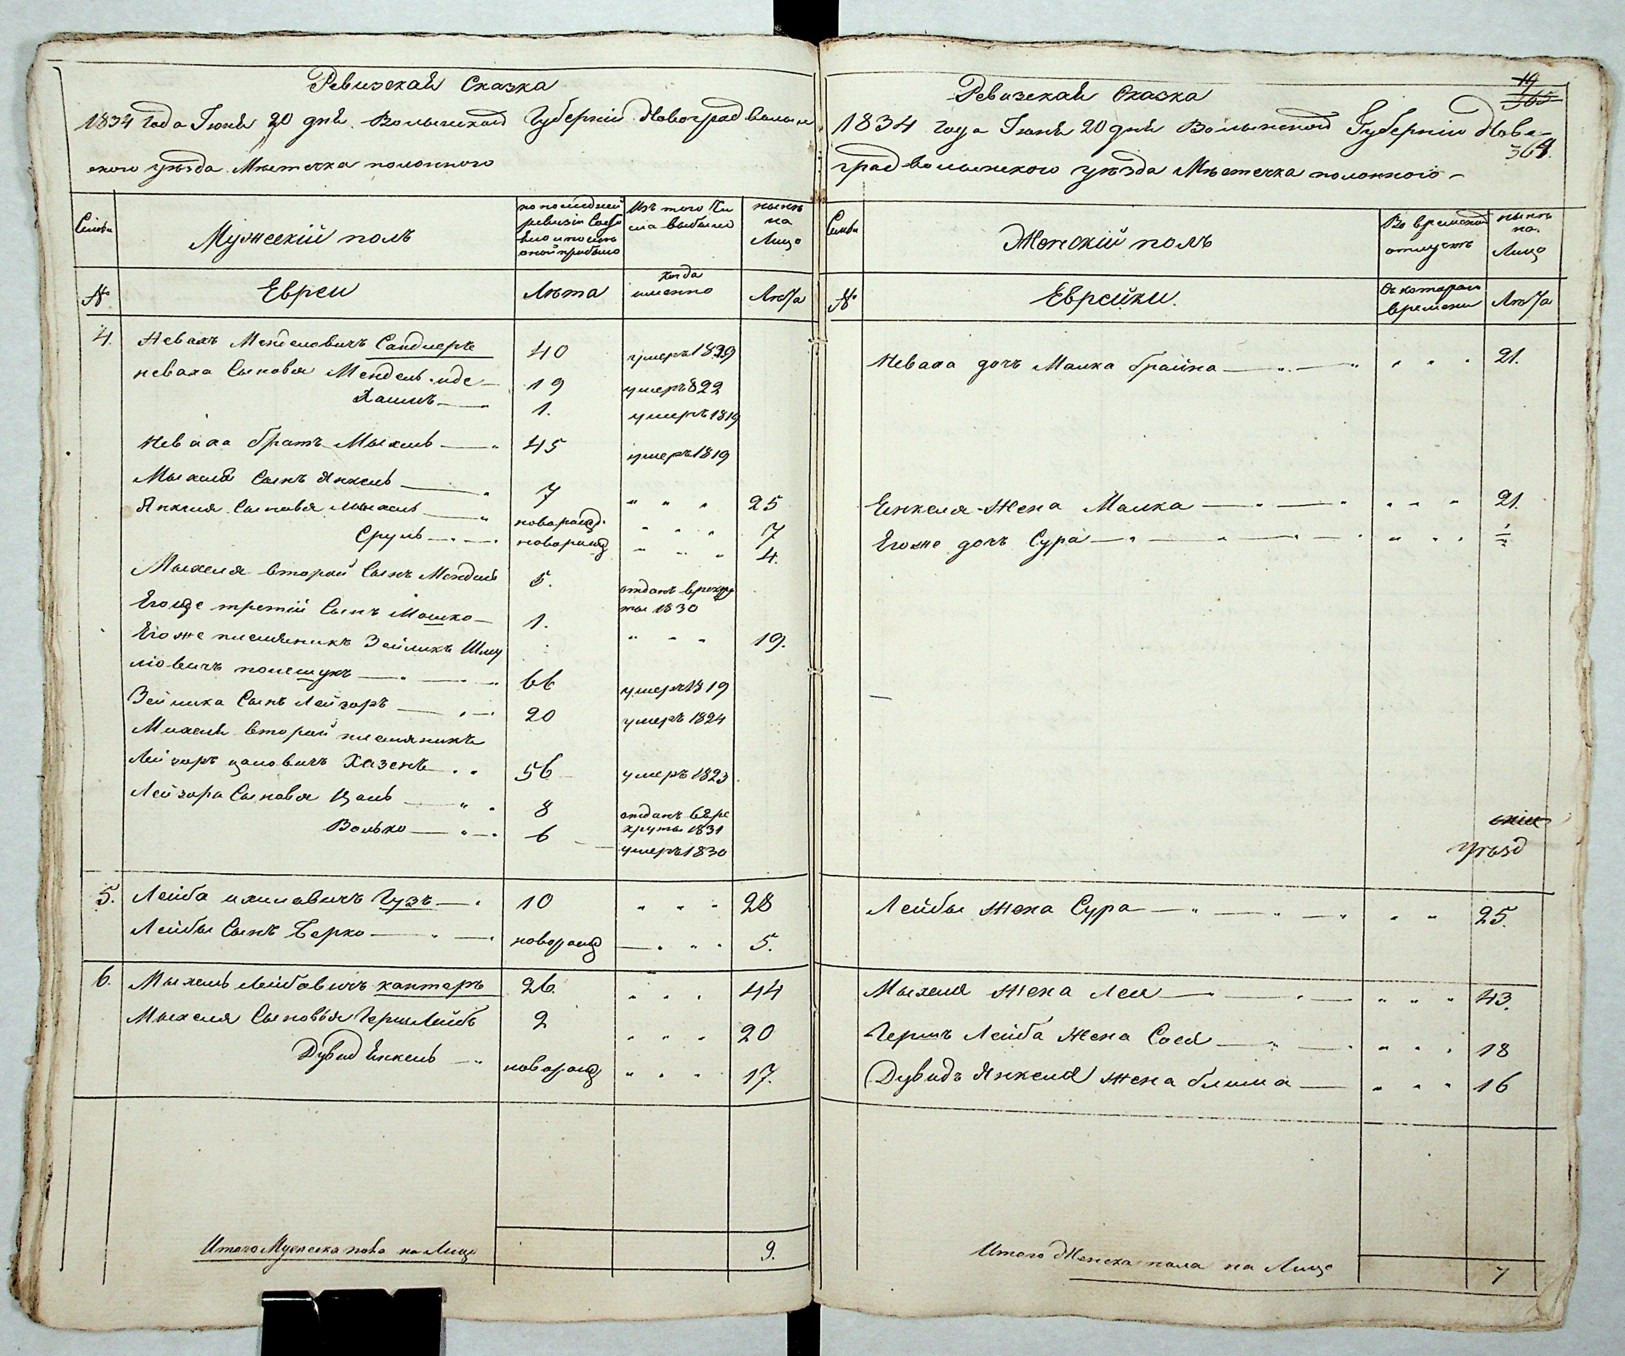 Ревизская Сказка
1834 года Июня 20 дня. Волынской Губернии Новоград Волын
ского уѣзда Мѣстечка полонного
Семьи
Мужескій полъ
по послѣдней ревизіи Состояло и послѣ оной прибыло
Изъ того числа выбыло
нынѣ на Лицо
№
Евреи
Лѣта
когда именно
Лѣта
4. Невахъ Менделовичъ Сандлеръ 40 умеръ 1829
неваха Сыновья Мендель 19 умеръ 822
Хаимъ 1. умеръ 1819
Неваха братъ Мыхель 45 умеръ 1819
Мыхеля Сынъ Янкель 7 " " " 25
Янкеля Сыновья Мыхель новорожд. " " " 7
Сруль новорожд " " " 4.
Мыхеля второй Сынъ Мендель 5. отданъ врекру
ты 1830
Егоже третій Сынъ Мошко 1. " " " 19.
Егоже племянникъ Зейликъ Шму
ліовичъ полещукъ 66 умеръ 1819
Зейлика Сынъ Лейзоръ 20 умеръ 1824
Мыхеля второй племяникъ
Лейзоръ Хазенъ 56 умеръ 1823.
Лейзора Сыновья Цаль 8 отданъ вре
круты 1831
Волько 6 умеръ 1830
5. Лейба Гузъ 10 " " " 28
Лейбы Сынъ Берко новорожд " " 5.
6. Мыхель Лейбовичъ кантеръ 26 " " " 44
Мыхеля Сыновья Герш Лейбъ 2 " " " 20
Дувид Енкель новорожд " " " 17.
Итого Мужеска пола на Лицо 9.
Ревизская Сказка
19
365
364.
1834 года Июня 20 дня Волынской Губерніи Ново-
градволынского уѣзда Мѣстечка полонного –
Семьи
Женскій полъ
Во временной отлучкѣ
нынѣ на Лицо
№
Еврейки.
Съ котораго времени
Лѣта
Неваха дочь Малка брайна " " " 21.
Енкеля Жена Малка " " " 21.
Егоже дочь Сура " " "
уѣзд
Лейбы Жена Сура " " 25.
Мыхеля Жена Лея " " " 43.
Гершъ Лейба Жена Сося " " " 18
Дувидъ Янкеля жена блима " " " 16
Итого Женска пола на Лицо 7